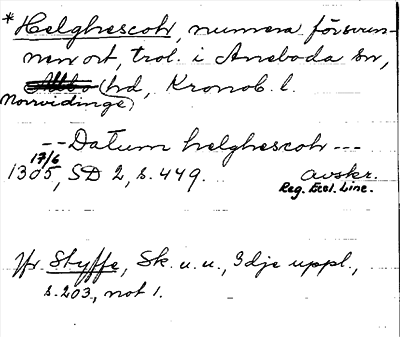 * Helghescoh, numera försvun-
nen ort, trol. i Aneboda sn,
Allbo hd, Kronob. l.
Norrvidinge
-- Datum helghescoh ---
17/6
1305, SD 2, s. 449. avskr.
Reg. Eccl. Linc.
Jfr Styffe, Sk. u. u., 3dje uppl.,
s. 203, not 1.